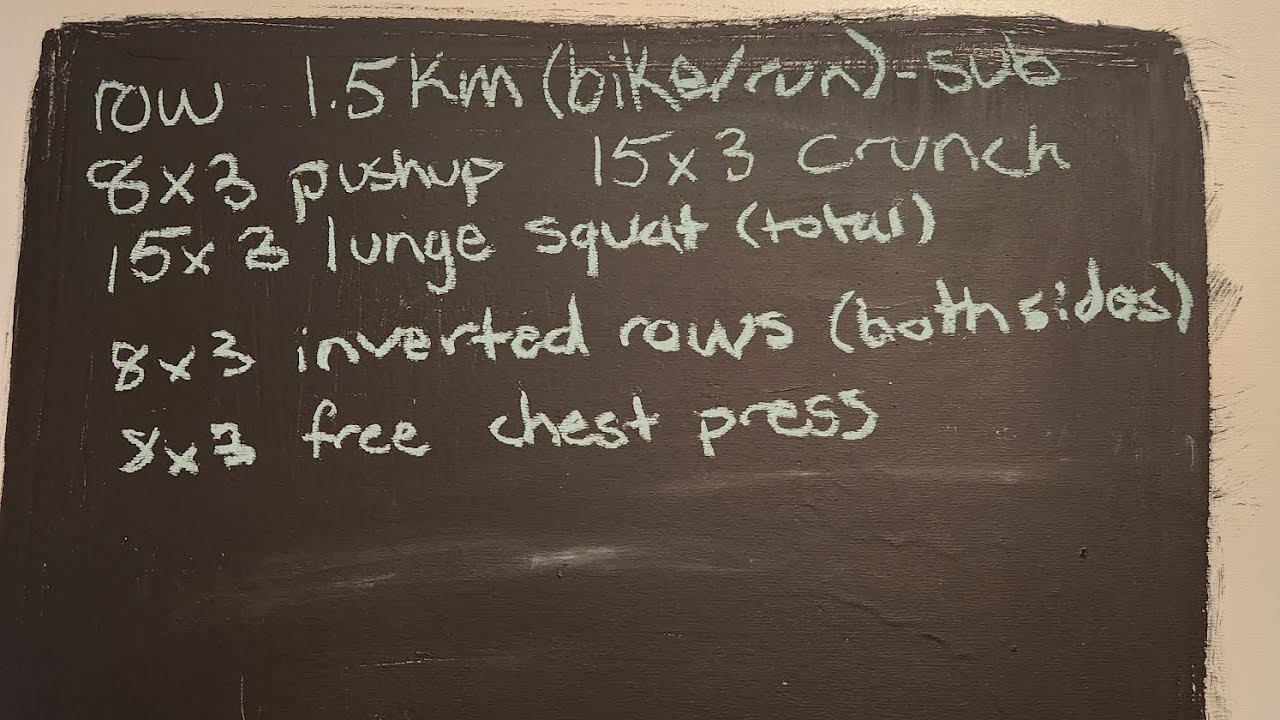 row 1.5 Km (bike/run) - sub
8x3 pushup 15x3 crunch
15x3 lunge squat (total)
8x3 inverted rows (both sides)
8x3 free chest press